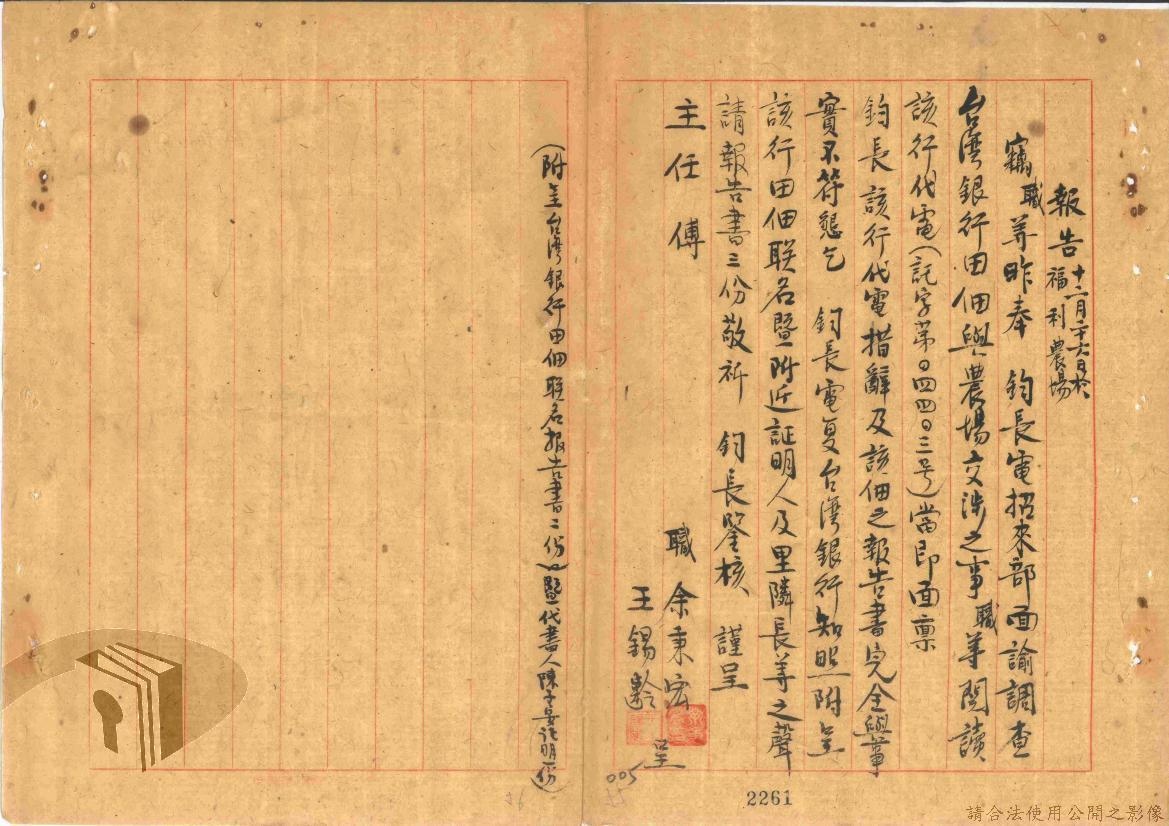 報告 十二月二十六日於福利農場
竊職等昨奉 鈞長電招來部面諭調查
台灣銀行田佃與農場交涉之事職等閱讀
該行代電(託字第0四四0三号)當即面禀
鈞長該行代電措辭及該佃之報告書完全與事
實不符懇乞 鈞長電复台灣銀行知照附呈
該行田佃联名暨附近証明人及里隣長等之聲
請報告書三份敬祈 鈞長鑒核 謹呈
主任 傅
職 余秉宏
王錫齡 呈
(附呈台灣銀行田佃联名报告書二份暨代書人陳 証明一份)
005
2261
請合法使用公開之影像